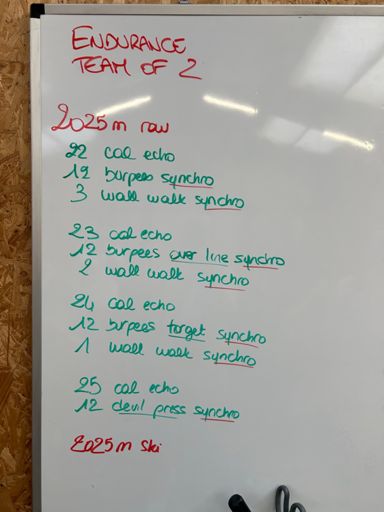 ENDURANCE
TEAM OF 2
2025m row
22 cal echo
12 burpees synchro
3 wall walk synchro
23 cal echo
12 burpees over line synchro
2 wall walk synchro
24 cal echo
12 burpees target synchro
1 wall walk synchro
25 cal echo
12 devil press synchro
2025m ski